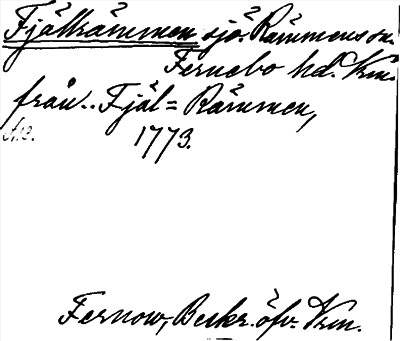 Fjälrämmen sjö. Rämmens sn.
Fernebo hd. Vrm.
från.. Fjäl= Rämmen,
1773.
Fernow, Beskr. öfv. Vrm.